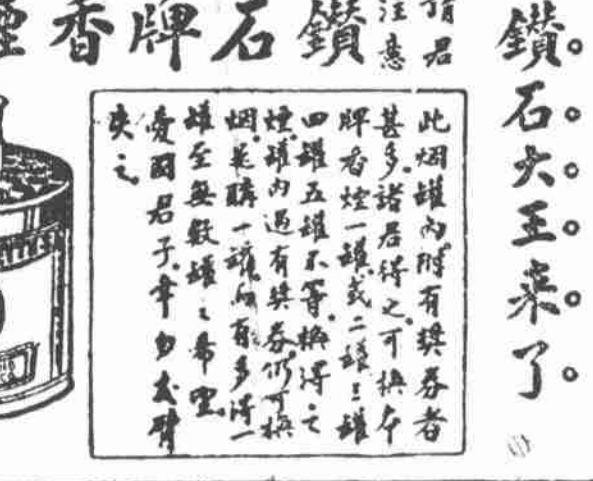 鑽石大王來了
請君
注意
鑽石牌香煙
此烟罐內附有獎券者
甚多諸君得之可換本
牌香煙一罐或二罐三罐
四罐五罐不等換得之
煙罐內遇有獎券仍可換
烟是購一罐而有多得一
罐至無數罐之希望
愛國君子幸勿交臂
失之